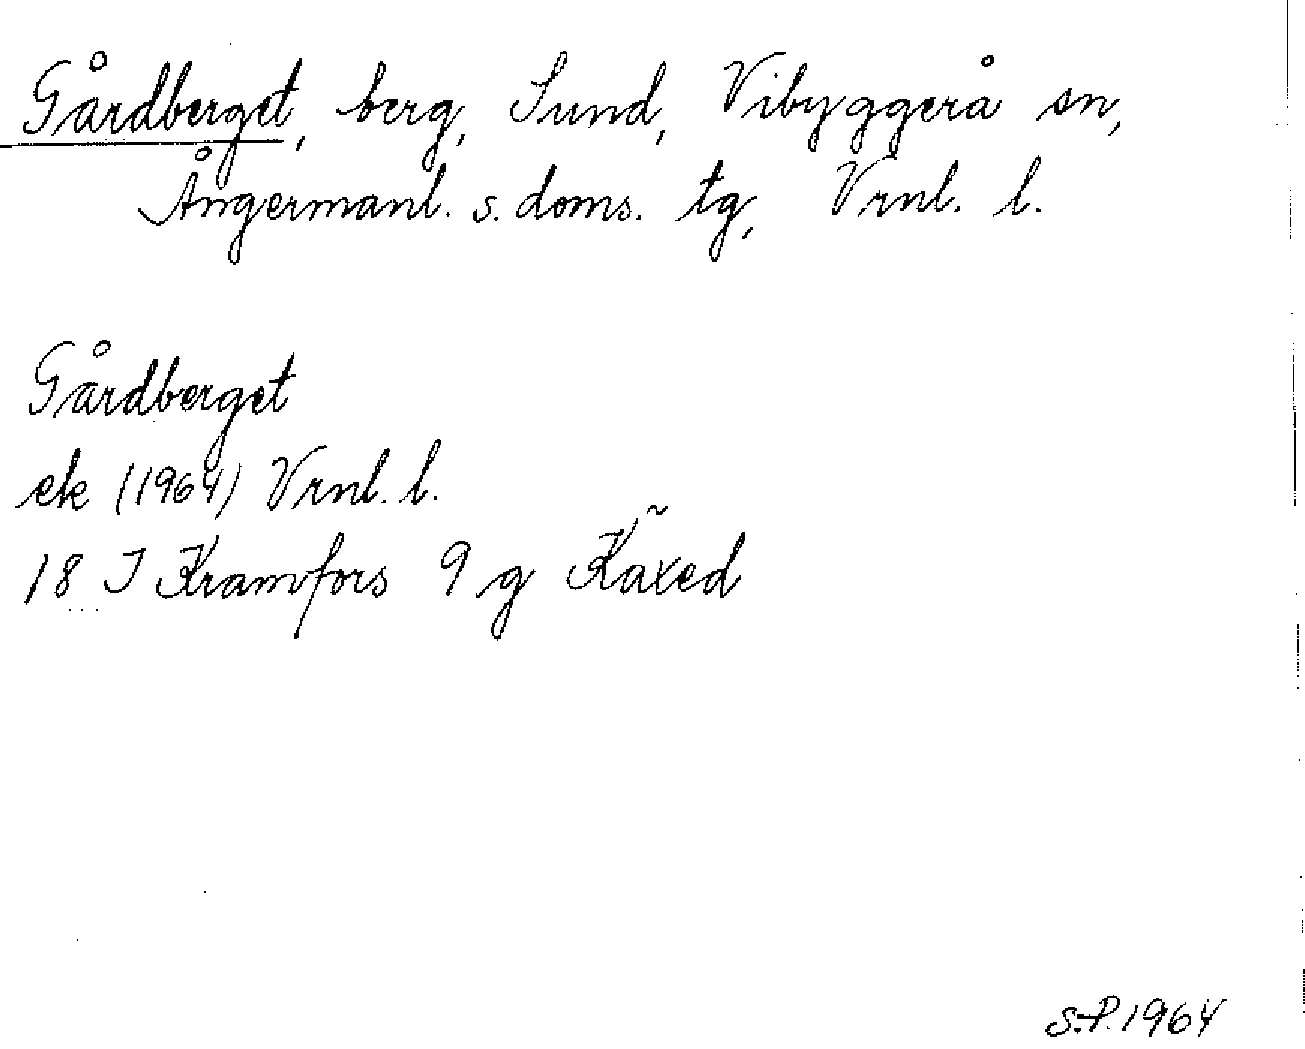 Gårdberget, berg, Sund, Vibyggerå sn,
Ångermanl. s. doms. tg, Vrnl. l.
Gårdberget
ek (1964) Vrnl. l.
18 I Kramfors 9 g Käxed
S.P. 1964